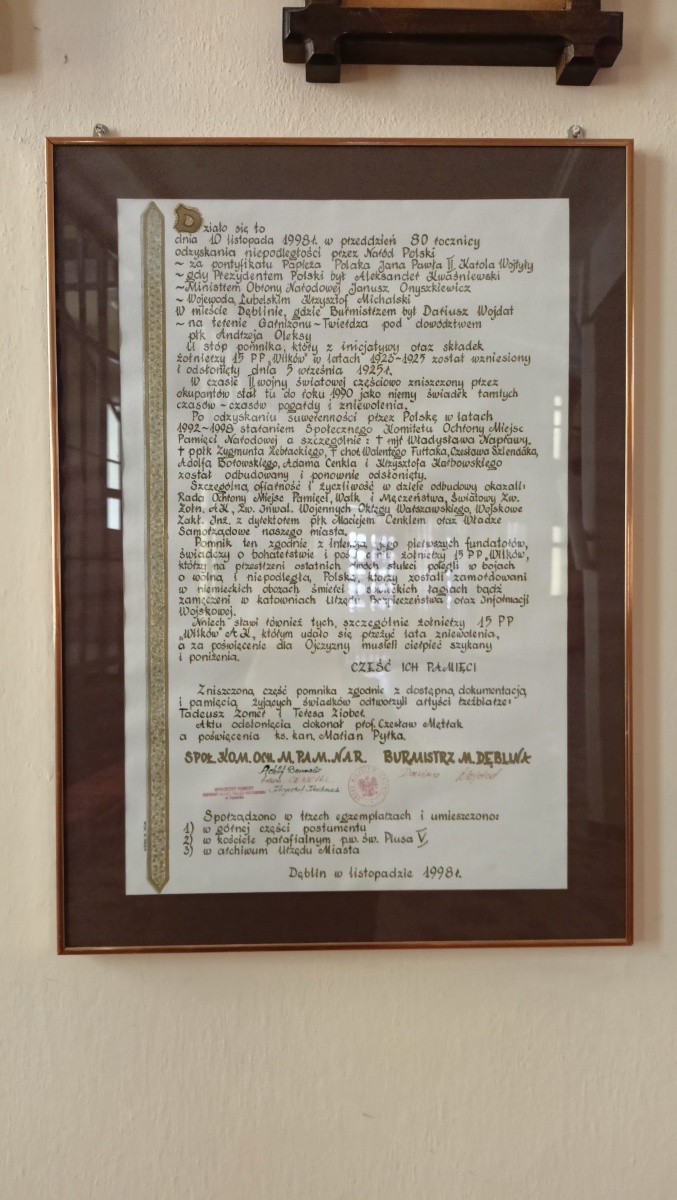 Działo się to
dnia 10 listopada 1998r. w przeddzień 80 rocznicy
odzyskania niepodległości przez Naród Polski
~ za pontyfikatu Papieża Polaka Jana Pawła II, Karola Wojtyły
~ gdy Prezydentem Polski był Aleksander Kwaśniewski
~ Ministrem Obrony Narodowej Janusz Onyszkiewicz
~ Wojewodą Lubelskim Krzysztof Michalski
W mieście Dęblinie, gdzie Burmistrzem był Dariusz Wojdat
~ na terenie Garnizonu ~ Twierdza pod dowództwem
płk Andrzeja Oleksy
U stóp pomnika, który z inicjatywy oraz składek
żołnierzy 15 PP „Wilków" w latach 1923-1925 został wzniesiony
i odsłonięty dnia 5 września 1925r.
W czasie II wojny światowej częściowo zniszczony przez
okupantów stał tu do roku 1990 jako niemy świadek tamtych
czasów - czasów pogardy i zniewolenia.
Po odzyskaniu suwerenności przez Polskę w latach
1992-1998 staraniem Społecznego Komitetu Ochrony Miejsc
Pamięci Narodowej a szczególnie: † mjr Władysława Napravy,
† ppłk Zygmunta Zebrackiego, † chor. Walentego Furtaka, Czesława Szlendaka,
Adolfa Borowskiego, Adama Cenkla i Krzysztofa Karbowskiego
został odbudowany i ponownie odsłonięty.
Szczególną ofiarność i życzliwość w dziele odbudowy okazali:
Rada Ochrony Miejsc Pamięci, Walk i Męczeństwa, Światowy Zw.
Żołn. A.K., Zw. Inwal. Wojennych Okręgu Warszawskiego, Wojskowe
Zakł. Inż. z dyrektorem płk Maciejem Cenklem oraz Władze
Samorządowe naszego miasta.
Pomnik ten zgodnie z jego pierwszych fundatorów,
świadczy o bohaterstwie i żołnierzy 15 PP „Wilków",
którzy na przestrzeni ostatnich dwóch stuleci polegli w bojach
o wolną i niepodległą Polskę, którzy zostali zamordowani
w niemieckich obozach śmierci i sowieckich łagrach bądź
zamęczeni w katowniach Urzędu Bezpieczeństwa oraz Informacji
Wojskowej.
Niech sławi również tych, szczególnie żołnierzy 15 PP
„Wilków" A.K., którym udało się przeżyć lata zniewolenia,
a za poświęcenie dla Ojczyzny musieli cierpieć szykany
i poniżenia.
CZEŚĆ ICH PAMIĘCI
Zniszczoną część pomnika zgodnie z dostępną dokumentacją
i pamięcią żyjących świadków odtworzyli artyści rzeźbiarze:
Tadeusz Zomer i Teresa Ziober
Aktu odsłonięcia dokonał prof. Czesław Mętrak
a poświęcenia ks. kan. Marian Pyrka.
SPOŁ. KOM. OCH. M. PAM. NAR. BURMISTRZ M. DĘBLINA
Sporządzono w trzech egzemplarzach i umieszczono:
1) w górnej części postumentu
2) w kościele parafialnym p.w. św. Piusa V,
3) w archiwum Urzędu Miasta
Dęblin w listopadzie 1998r.